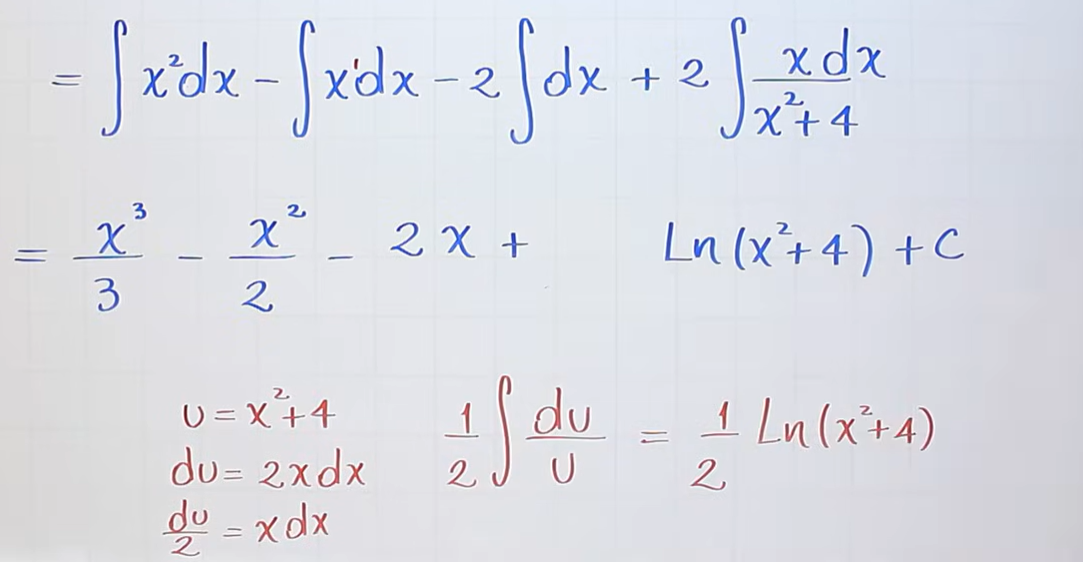 = ∫ x²dx − ∫ x¹dx − 2 ∫ dx + 2 ∫ xdx/(x²+4)
= x³/3 − x²/2 − 2x + Ln(x²+4) + C
u = x²+4
du = 2xdx
du/2 = xdx
1/2 ∫ du/u = 1/2 Ln(x²+4)